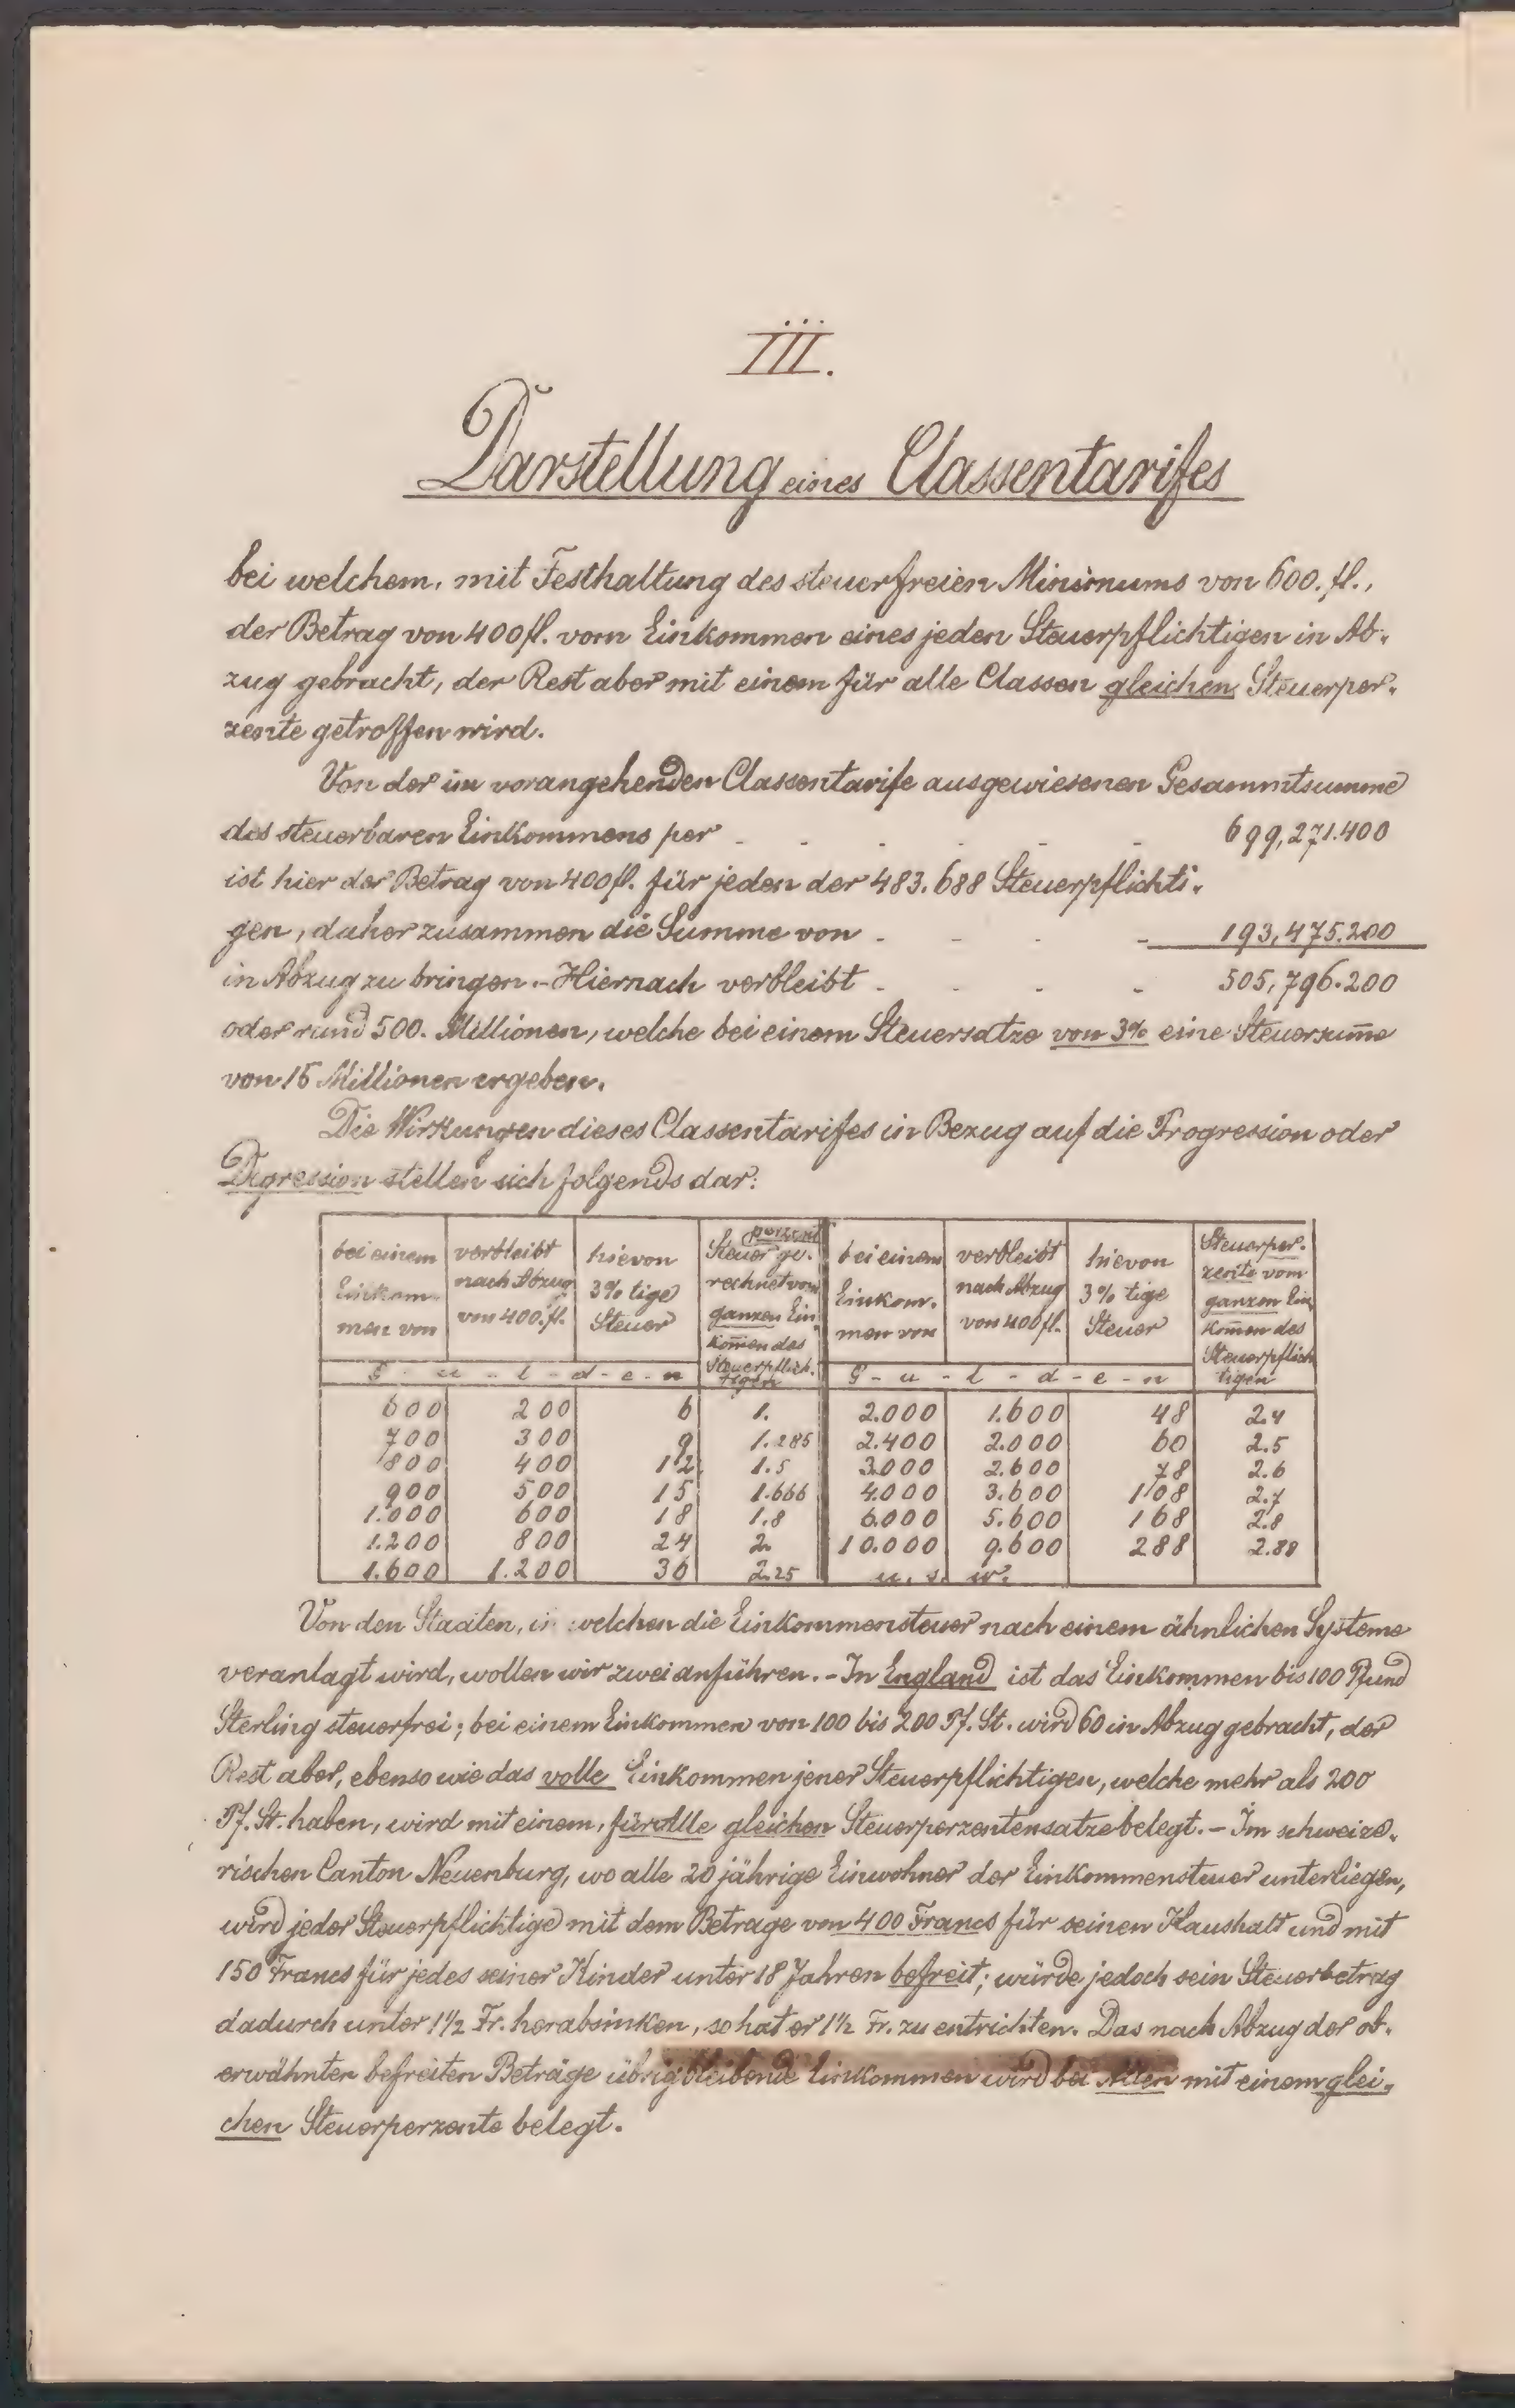 III.
Darstellung eines Classentarifes
bei welchem, mit Festhaltung des steuerfreien Minimums von 600. fl.,
der Betrag von 400 fl. vom Einkommen eines jeden Steuerpflichtigen in Ab-
zug gebracht, der Rest aber mit einem für alle Classen gleichen Steuerper-
zente getroffen wird.
Von der im vorangehenden Classentarife ausgewiesenen Gesammtsumme
des steuerbaren Einkommens per - - - - - - 699,271.400
ist hier der Betrag von 400 fl. für jeden der 483.688 Steuerpflichti-
gen, daher zusammen die Summe von - - - - 193,475.200
in Abzug zu bringen. - Hiernach verbleibt - - - - 505,796.200
oder rund 500. Millionen, welche bei einem Steuersatze von 3% eine Steuersum̄e
von 15 Millionen ergeben.
Die Wirkungen dieses Classentarifes in Bezug auf die Progression oder
Degression stellen sich folgends dar:
bei einem Einkom- men von | verbleibt nach Abzug von 400. fl. | hievon 3% tige Steuer | Steuerperzent ge- rechnet vom ganzen Ein- kom̄en des Steuerpflich- tigen | bei einem Einkom- men von | verbleibt nach Abzug von 400 fl. | hievon 3% tige Steuer | Steuerper- zente vom ganzen Ein- kom̄en des Steuerpflich tigen
G - u - l - d - e - n | G - u - l - d - e - n
600 | 200 | 6 | 1. | 2.000 | 1.600 | 48 | 2.4
700 | 300 | 9 | 1.285 | 2.400 | 2.000 | 60 | 2.5
800 | 400 | 12 | 1.5 | 3.000 | 2.600 | 78 | 2.6
900 | 500 | 15 | 1.666 | 4.000 | 3.600 | 108 | 2.7
1.000 | 600 | 18 | 1.8 | 6.000 | 5.600 | 168 | 2.8
1.200 | 800 | 24 | 2. | 10.000 | 9.600 | 288 | 2.88
1.600 | 1.200 | 36 | 2.25 | u. s. w.
Von den Staaten, in welchen die Einkommensteuer nach einem ähnlichen Systeme
veranlagt wird, wollen wir zwei anführen. - In England ist das Einkommen bis 100 Pfund
Sterling steuerfrei; bei einem Einkommen von 100 bis 200 Pf. St. wird 60 in Abzug gebracht, der
Rest aber, ebenso wie das volle Einkommen jener Steuerpflichtigen, welche mehr als 200
Pf. St. haben, wird mit einem, für Alle gleichen Steuerperzentensatze belegt. - Im schweize-
rischen Canton Neuenburg, wo alle 20 jährige Einwohner der Einkommensteuer unterliegen,
wird jeder Steuerpflichtige mit dem Betrage von 400 Francs für seinen Haushalt und mit
150 Francs für jedes seiner Kinder unter 18 Jahren befreit; würde jedoch sein Steuerbetrag
dadurch unter 1½ Fr. herabsinken, so hat er 1½ Fr. zu entrichten. Das nach Abzug der ob-
erwähnten befreiten Beträge übrigbleibende Einkommen wird bei Allen mit einem glei-
chen Steuerperzente belegt.